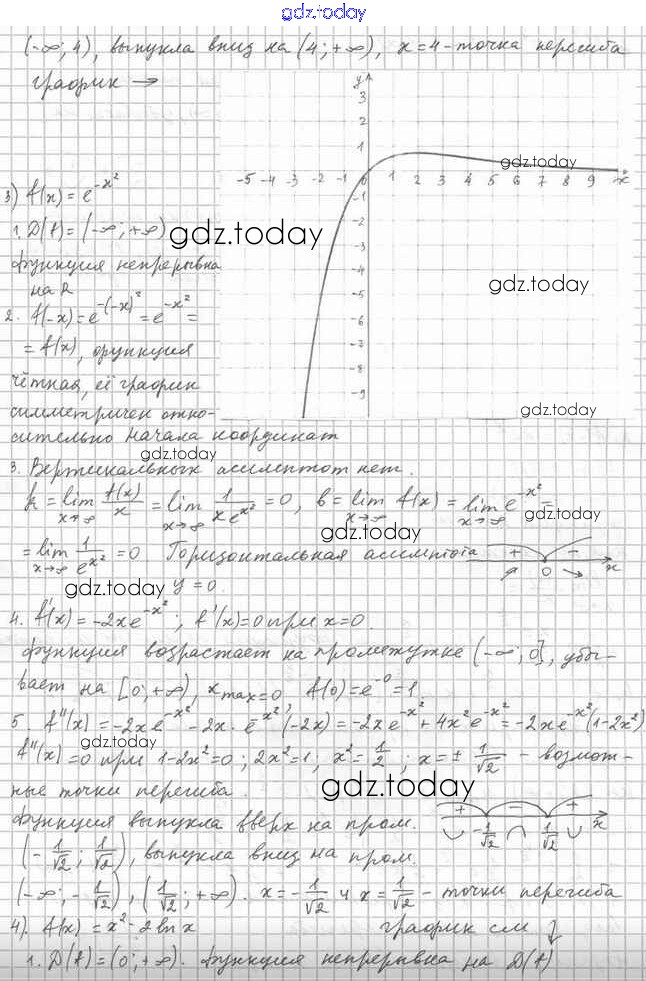 gdz.today
(-∞; 4), выпукла вниз на (4; +∞), x = 4 - точка перегиба
график →
y
3
2
1
gdz.today
-5 -4 -3 -2 -1 0 1 2 3 4 5 6 7 8 9 x
-1
-2
-3
-4
-5
-6
-7
-8
-9
3) f(x) = e^{-x²}
1. D(f) = (-∞; +∞)
gdz.today
функция непрерывна
на R
gdz.today
2. f(-x) = e^{-(-x)²} = e^{-x²} =
= f(x), функция
чётная, её график
симметричен отно-
gdz.today
сительно начала координат
gdz.today
3. Вертикальных асимптот нет.
k = lim x→∞ f(x)/x = lim x→∞ 1/(x e^{x²}) = 0, b = lim x→∞ f(x) = lim x→∞ e^{-x²} =
gdz.today
= lim x→∞ 1/e^{x²} = 0 Горизонтальная асимптота
+ - 0 x
gdz.today
y = 0
4. f'(x) = -2xe^{-x²}; f'(x) = 0 при x = 0.
функция возрастает на промежутке (-∞; 0], убы-
вает на [0; +∞), x max = 0, f(0) = e^{-0} = 1.
5. f''(x) = -2xe^{-x²} - 2x · e^{-x²}(-2x) = -2xe^{-x²} + 4x²e^{-x²} = -2xe^{-x²}(1-2x²)
gdz.today
f''(x) = 0 при 1-2x² = 0; 2x² = 1; x² = 1/2; x = ± 1/√2 - возмож-
ные точки перегиба.
gdz.today
+ - +
-1/√2 1/√2 x
функция выпукла вверх на пром.
(-1/√2; 1/√2), выпукла вниз на пром.
(-∞; -1/√2), (1/√2; +∞). x = -1/√2 и x = 1/√2 - точки перегиба
4). f(x) = x² - 2 ln x график см ↓
1. D(f) = (0; +∞). функция непрерывна на D(f)